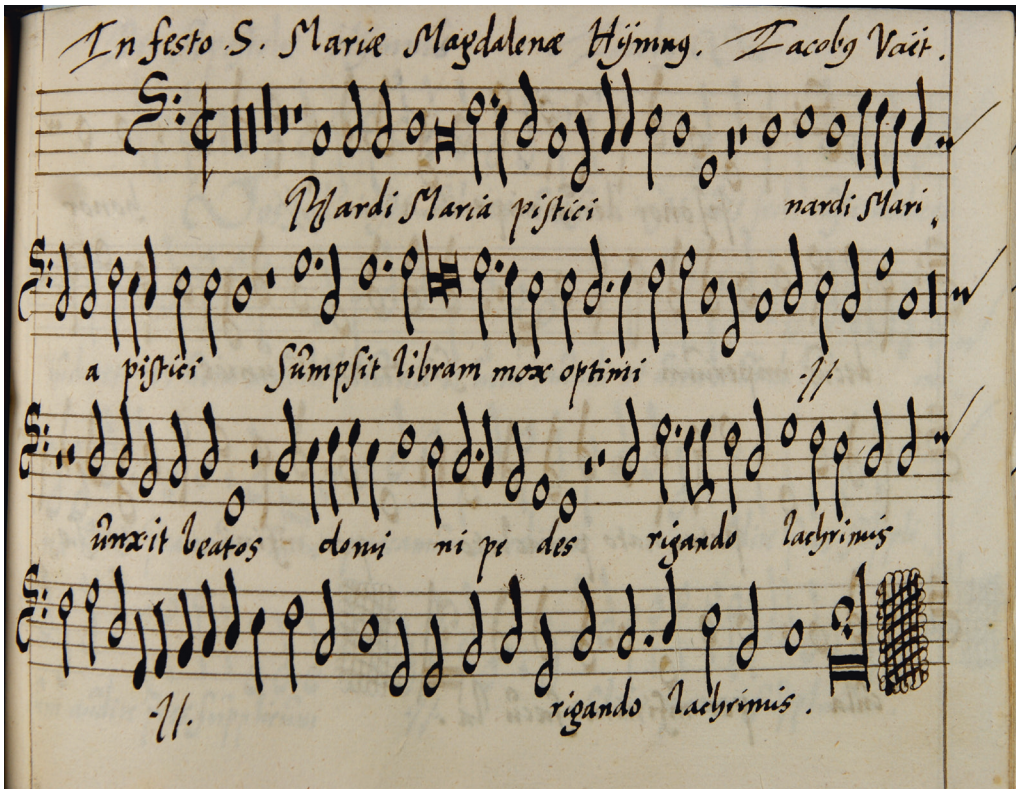 In festo S. Mariæ Magdalenæ Hÿmnꝰ. Iacobꝰ Vaët.
Nardi Maria pistici nardi Mari
a pistici Sūmpsit libram mox optimi .//.
ūnxit beatos domi ni pe des rigando lachrimis
.//. rigando lachrimis.